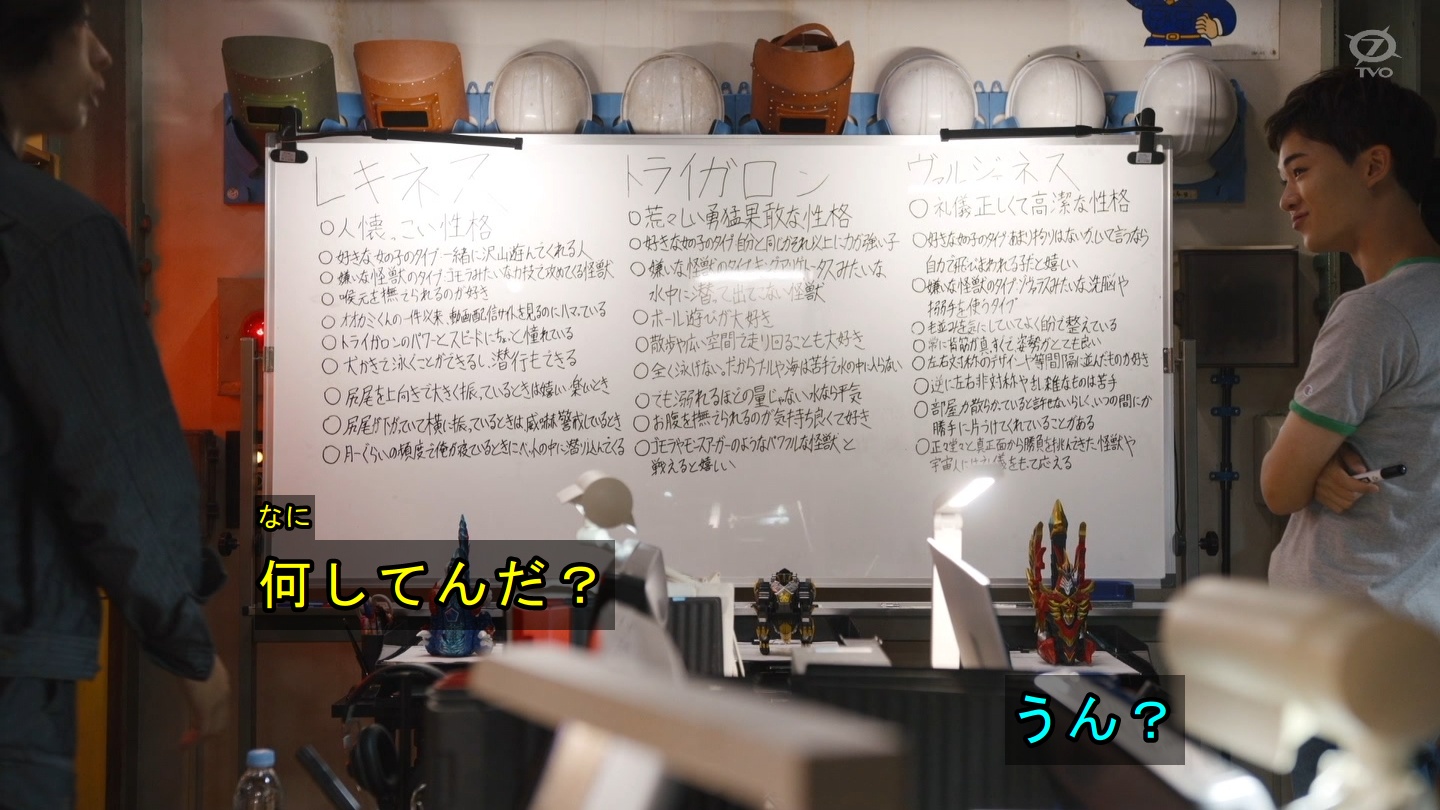 7
TVO
レキネス
○人懐っこい性格
○好きな女の子のタイプ:一緒に沢山遊んでくれる人
○嫌いな怪獣のタイプ:ゴモラみたいな力技で攻めてくる怪獣
○喉元を撫でられるのが好き
○オオカミくんの一件以来、動画配信サイトを見るのにハマっている
○トライガロンのパワーとスピードにちょっと憧れている
○犬かきで泳ぐことができるし、潜行もできる
○尻尾を上向きで大きく振っているときは嬉しい・楽しいとき
○尻尾が下がっていて横に振っているときは威嚇・警戒しているとき
○月一ぐらいの頻度で俺が寝ているときにベッドの中に潜り込んでくる
トライガロン
○荒々しい勇猛果敢な性格
○好きな女の子のタイプ:自分と同じかそれ以上に力が強い子
○嫌いな怪獣のタイプ:みたいな
水中に潜って出てこない怪獣
○ボール遊びが大好き
○散歩や広い空間で走り回ることも大好き
○全く泳げない。だからプールや海は苦手で水の中に入らない
○でも溺れるほどの量じゃない水なら平気
○お腹を撫でられるのが気持ち良くて好き
○ゴモラやモンスアーガーのようなパワフルな怪獣と
戦えると嬉しい
ヴァルジェネス
○礼儀正しくて高潔な性格
○好きな女の子のタイプ:あまりこだわりはないが、しいて言うなら
自力で飛びまわれる子だと嬉しい
○嫌いな怪獣のタイプ:みたいな洗脳や
搦手を使うタイプ
○毛並みを気にしていてよく自分で整えている
○常に背筋が真すぐで姿勢がとても良い
○左右対称のデザインや等間隔に並んだものが好き
○逆に左右非対称や乱雑なものは苦手
○部屋が散らかっていると許せないらしく、いつの間にか
勝手に片づけてくれていることがある
○正々堂々と真正面から勝負を挑んできた怪獣や
宇宙人には礼儀をもって応える
なに
何してんだ？
うん？